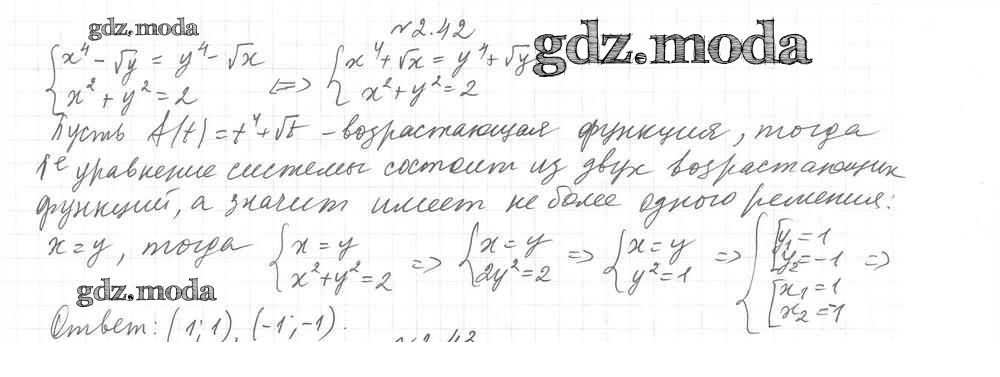 gdz.moda
№2.42
gdz.moda
{x⁴ - √y = y⁴ - √x {x⁴ + √x = y⁴ + √y
{x² + y² = 2 <=> {x² + y² = 2
Пусть A(t) = t⁴ + √t - возрастающая функция, тогда
1е уравнение системы состоит из двух возрастающих
функций, а значит имеет не более одного решения:
x = y, тогда {x = y => {x = y => {x = y => {[y₁ = 1 =>
{x² + y² = 2 {2y² = 2 {y² = 1 [y₂ = -1
[x₁ = 1
gdz.moda
[x₂ = -1
Ответ: (1; 1), (-1; -1).